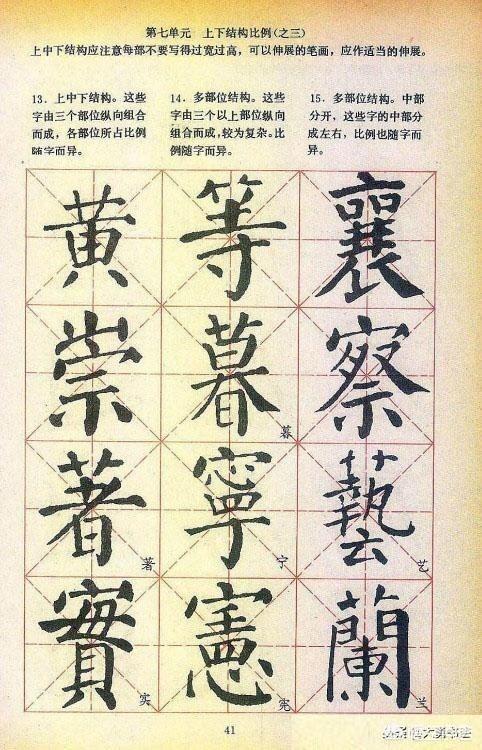 第七单元　上下结构比例(之三)
上中下结构应注意每部不要写得过宽过高，可以伸展的笔画，应作适当的伸展。
13．上中下结构。这些
字由三个部位纵向组合
而成，各部位所占比例
随字而异。
14．多部位结构。这些
字由三个以上部位纵向
组合而成，较为复杂。比
例随字而异。
15．多部位结构。中部
分开，这些字的中部分
成左右，比例也随字而
异。
黄 等 襄
崇 暮 察
暮
著 寧 藝
著 宁 艺
實 憲 蘭
实 宪 兰
41